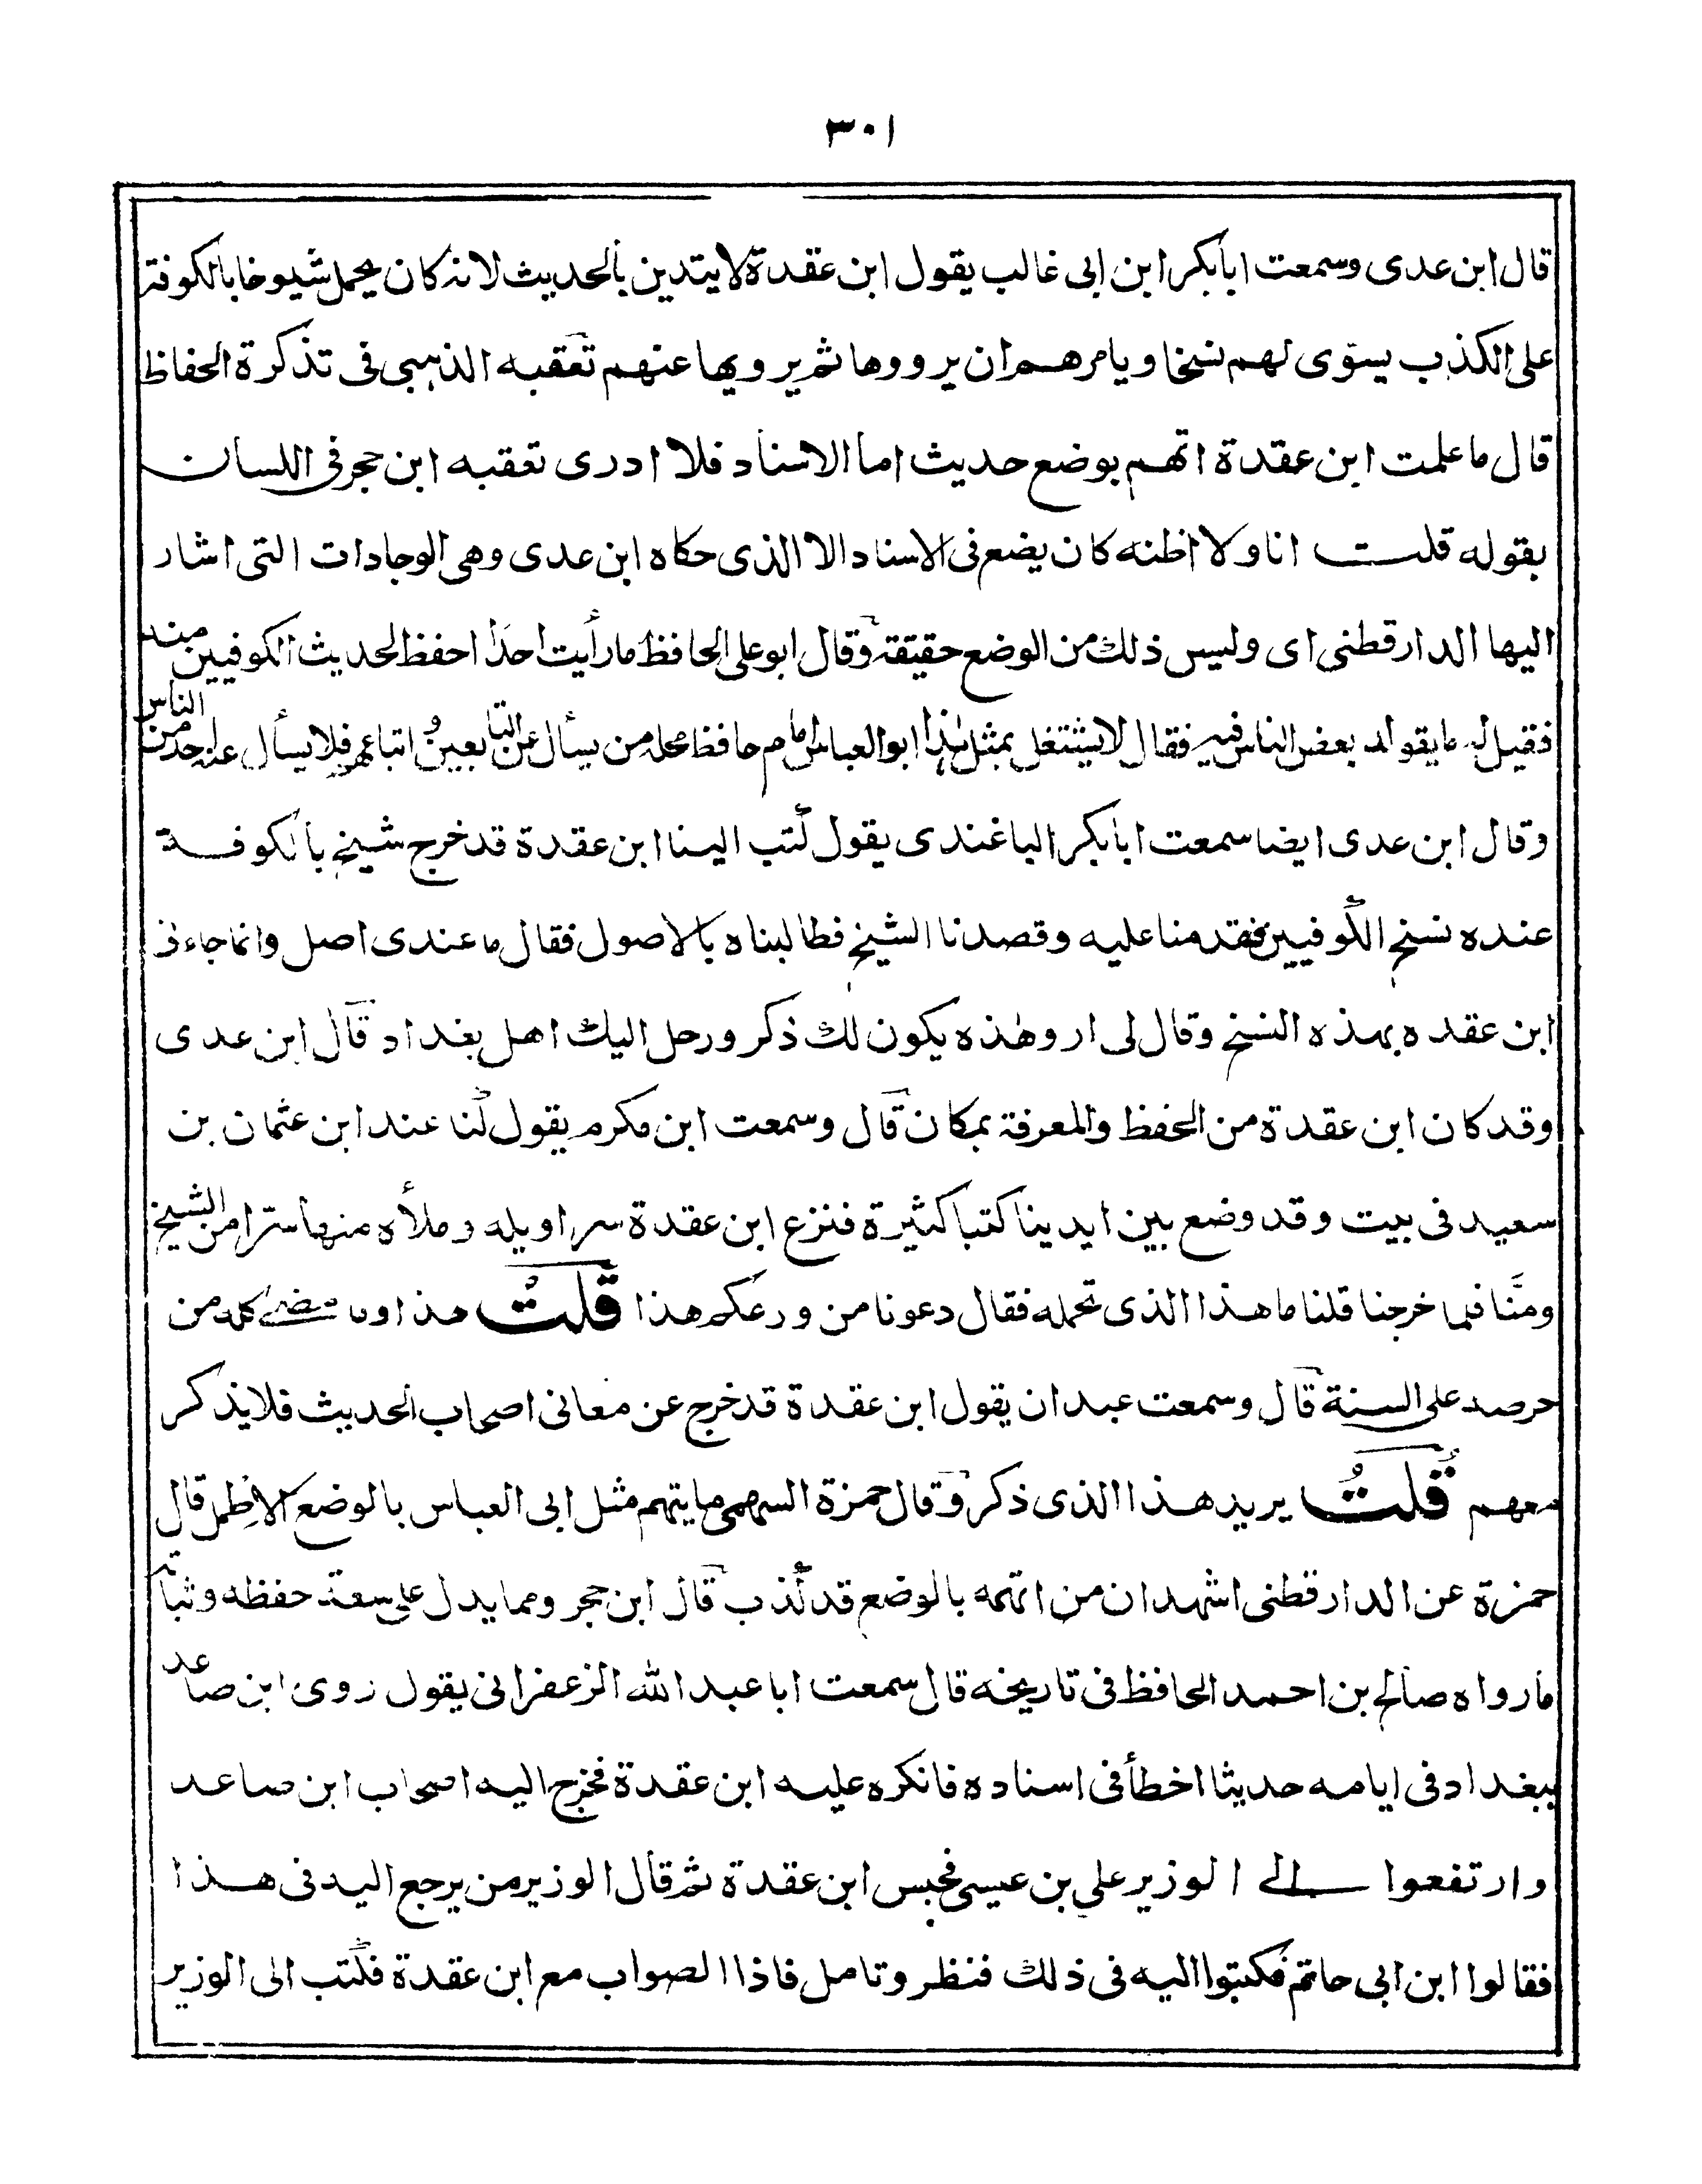 ٣٠١
قال ابن عدى وسمعت ابابكر ابن ابى غالب يقول ابن عقدة لا يتدين بالحديث لانه كان يحمل شيوخا بالكوفة
على الكذب يسوّى لهم نسخا ويامرهم ان يرووها ثم يرويها عنهم تعقبه الذهبى فى تذكرة الحفاظ
قال ما علمت ابن عقدة اتهم بوضع حديث اما الاسناد فلا ادرى تعقبه ابن حجر فى اللسان
بقوله قلت انا ولا اظنه كان يضع فى الاسناد الا الذى حكاه ابن عدى وهى الوجادات التى اشار
اليها الدارقطنى اى وليس ذلك من الوضع حقيقة وقال ابو على الحافظ ما رأيت احدا احفظ لحديث الكوفيين منه
فقيل له ما يقوله بعض الناس فيه فقال لا يشتغل بمثل هذا ابو العباس امام حافظ محله من يسأل عن التابعين و اتباعهم فلا يسأل عنه احد من الناس
وقال ابن عدى ايضا سمعت ابابكر الباغندى يقول كتب الينا ابن عقدة قد خرج شيخ بالكوفة
عنده نسخ الكوفيين فقدمنا عليه وقصدنا الشيخ فطالبناه بالاصول فقال ما عندى اصل وانما جاءنى
ابن عقده بهذه النسخ وقال لى ارو هذه يكون لك ذكر ورحل اليك اهل بغداد قال ابن عدى
وقد كان ابن عقدة من الحفظ والمعرفة بمكان قال وسمعت ابن مكرم يقول كنا عند ابن عثمان بن
سعيد فى بيت وقد وضع بين ايدينا كتبا كثيرة فنزع ابن عقدة سراويله وملأه منها سترا من الشيخ
ومنّا فلما خرجنا قلنا ما هذا الذى تحمله فقال دعونا من ورعكم هذا قلت هذا وما مضى كله من
حرصه على السنة قال وسمعت عبدان يقول ابن عقدة قد خرج عن معانى اصحاب الحديث فلا يذكر
معهم قلت يريد هذا الذى ذكر وقال حمزة السهمى ما يتهم مثل ابى العباس بالوضع الا طبل قال
حمزة عن الدارقطنى اشهد ان من اتهمه بالوضع قد كذب قال ابن حجر ومما يدل على سعة حفظه وثباته
ما رواه صالح بن احمد الحافظ فى تاريخه قال سمعت ابا عبد الله الزعفرانى يقول روى ابن صاعد
ببغداد فى ايامه حديثا اخطأ فى اسناده فانكره عليه ابن عقدة فخرج اليه اصحاب ابن صاعد
وارتفعوا الى الوزير على بن عيسى فحبس ابن عقدة ثم قال الوزير من يرجع اليه فى هذا
فقالوا ابن ابى حاتم فكتبوا اليه فى ذلك فنظر وتامل فاذا الصواب مع ابن عقدة فكتب الى الوزير